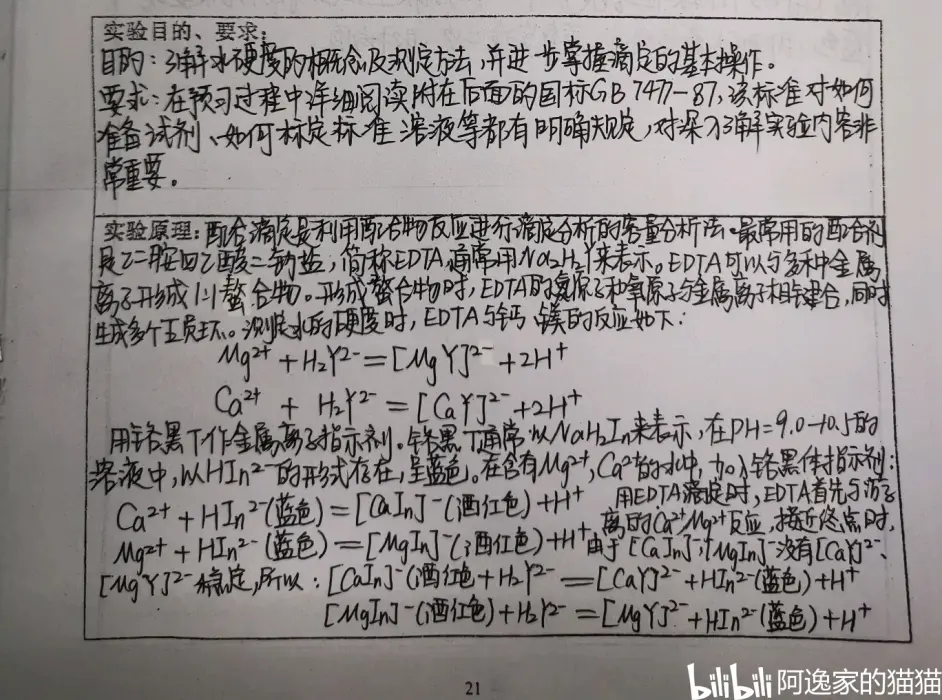 实验目的、要求:
目的：了解水硬度的概念及测定方法，并进一步掌握滴定的基本操作。
要求：在预习过程中详细阅读附在后面的国标GB 7477-87，该标准对如何
准备试剂、如何标定标准溶液等都有明确规定，对深入了解实验内容非
常重要。
实验原理：配合滴定是利用配合物反应进行滴定分析的容量分析法。最常用的配合剂
是乙二胺四乙酸二钠盐，简称EDTA，通常用Na₂H₂Y来表示。EDTA可以与多种金属
离子形成1:1螯合物。形成螯合物时，EDTA的氮原子和氧原子与金属离子相键合，同时
生成多个五员环。测定水的硬度时，EDTA与钙、镁的反应如下：
Mg²⁺ + H₂Y²⁻ = [MgY]²⁻ + 2H⁺
Ca²⁺ + H₂Y²⁻ = [CaY]²⁻ + 2H⁺
用铬黑T作金属离子指示剂。铬黑T通常以NaH₂In来表示，在PH=9.0-10.5的
溶液中，以HIn²⁻的形式存在，呈蓝色。在含有Mg²⁺，Ca²⁺的水中，加入铬黑体指示剂：
Ca²⁺ + HIn²⁻(蓝色) = [CaIn]⁻(酒红色) + H⁺
Mg²⁺ + HIn²⁻(蓝色) = [MgIn]⁻(酒红色) + H⁺
用EDTA滴定时，EDTA首先与游
离的Ca²⁺Mg²⁺反应，接近终点时，
由于[CaIn]⁻、[MgIn]⁻没有[CaY]²⁻、
[MgY]²⁻稳定，所以：[CaIn]⁻(酒红色 + H₂Y²⁻ = [CaY]²⁻ + HIn²⁻(蓝色) + H⁺
[MgIn]⁻(酒红色) + H₂Y²⁻ = [MgY]²⁻ + HIn²⁻(蓝色) + H⁺
21
bilibili 阿逸家的猫猫